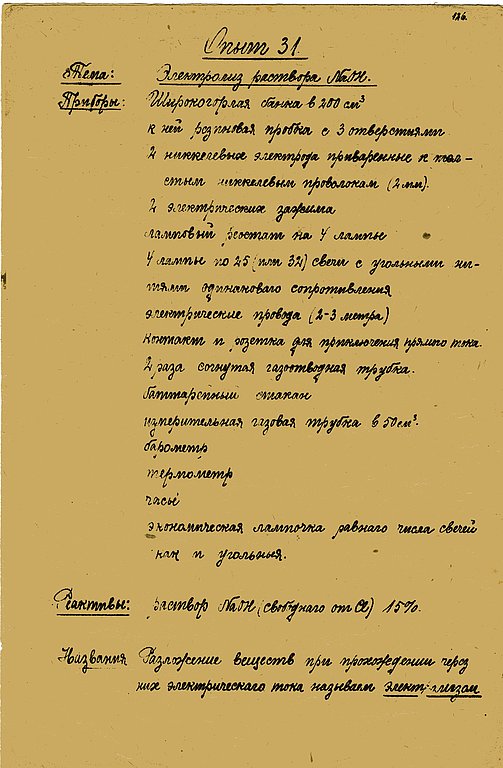 126.
Опыт 31.
Тема: Электролиз раствора NaOH.
Приборы: Широкогорлая банка в 200 см³
к ней резиновая пробка с 3 отверстиями
2 никкелевых электрода приваренные к тол–
стым никкелевым проволокам (2 мм).
2 электрических зажима
ламповый реостат на 4 лампы
4 лампы по 25 (или 32) свечи с угольными ни–
тями одинанового сопротивления
электрические провода (2–3 метра)
контакт и розетка для приключения прямто тока.
2 раза согнутая газоотводная трубка.
баттарейный стакан
измерительная газовая трубка в 50 см³.
барометр
термометр
часы
экономическая лампочка равнаго числа свечей
как и угольныя.
Реактивы: раствор NaOH (свободнаго от Cl) 15%.
Названия Разложение веществ при прохождении через
них электрическаго тока называем электролизом